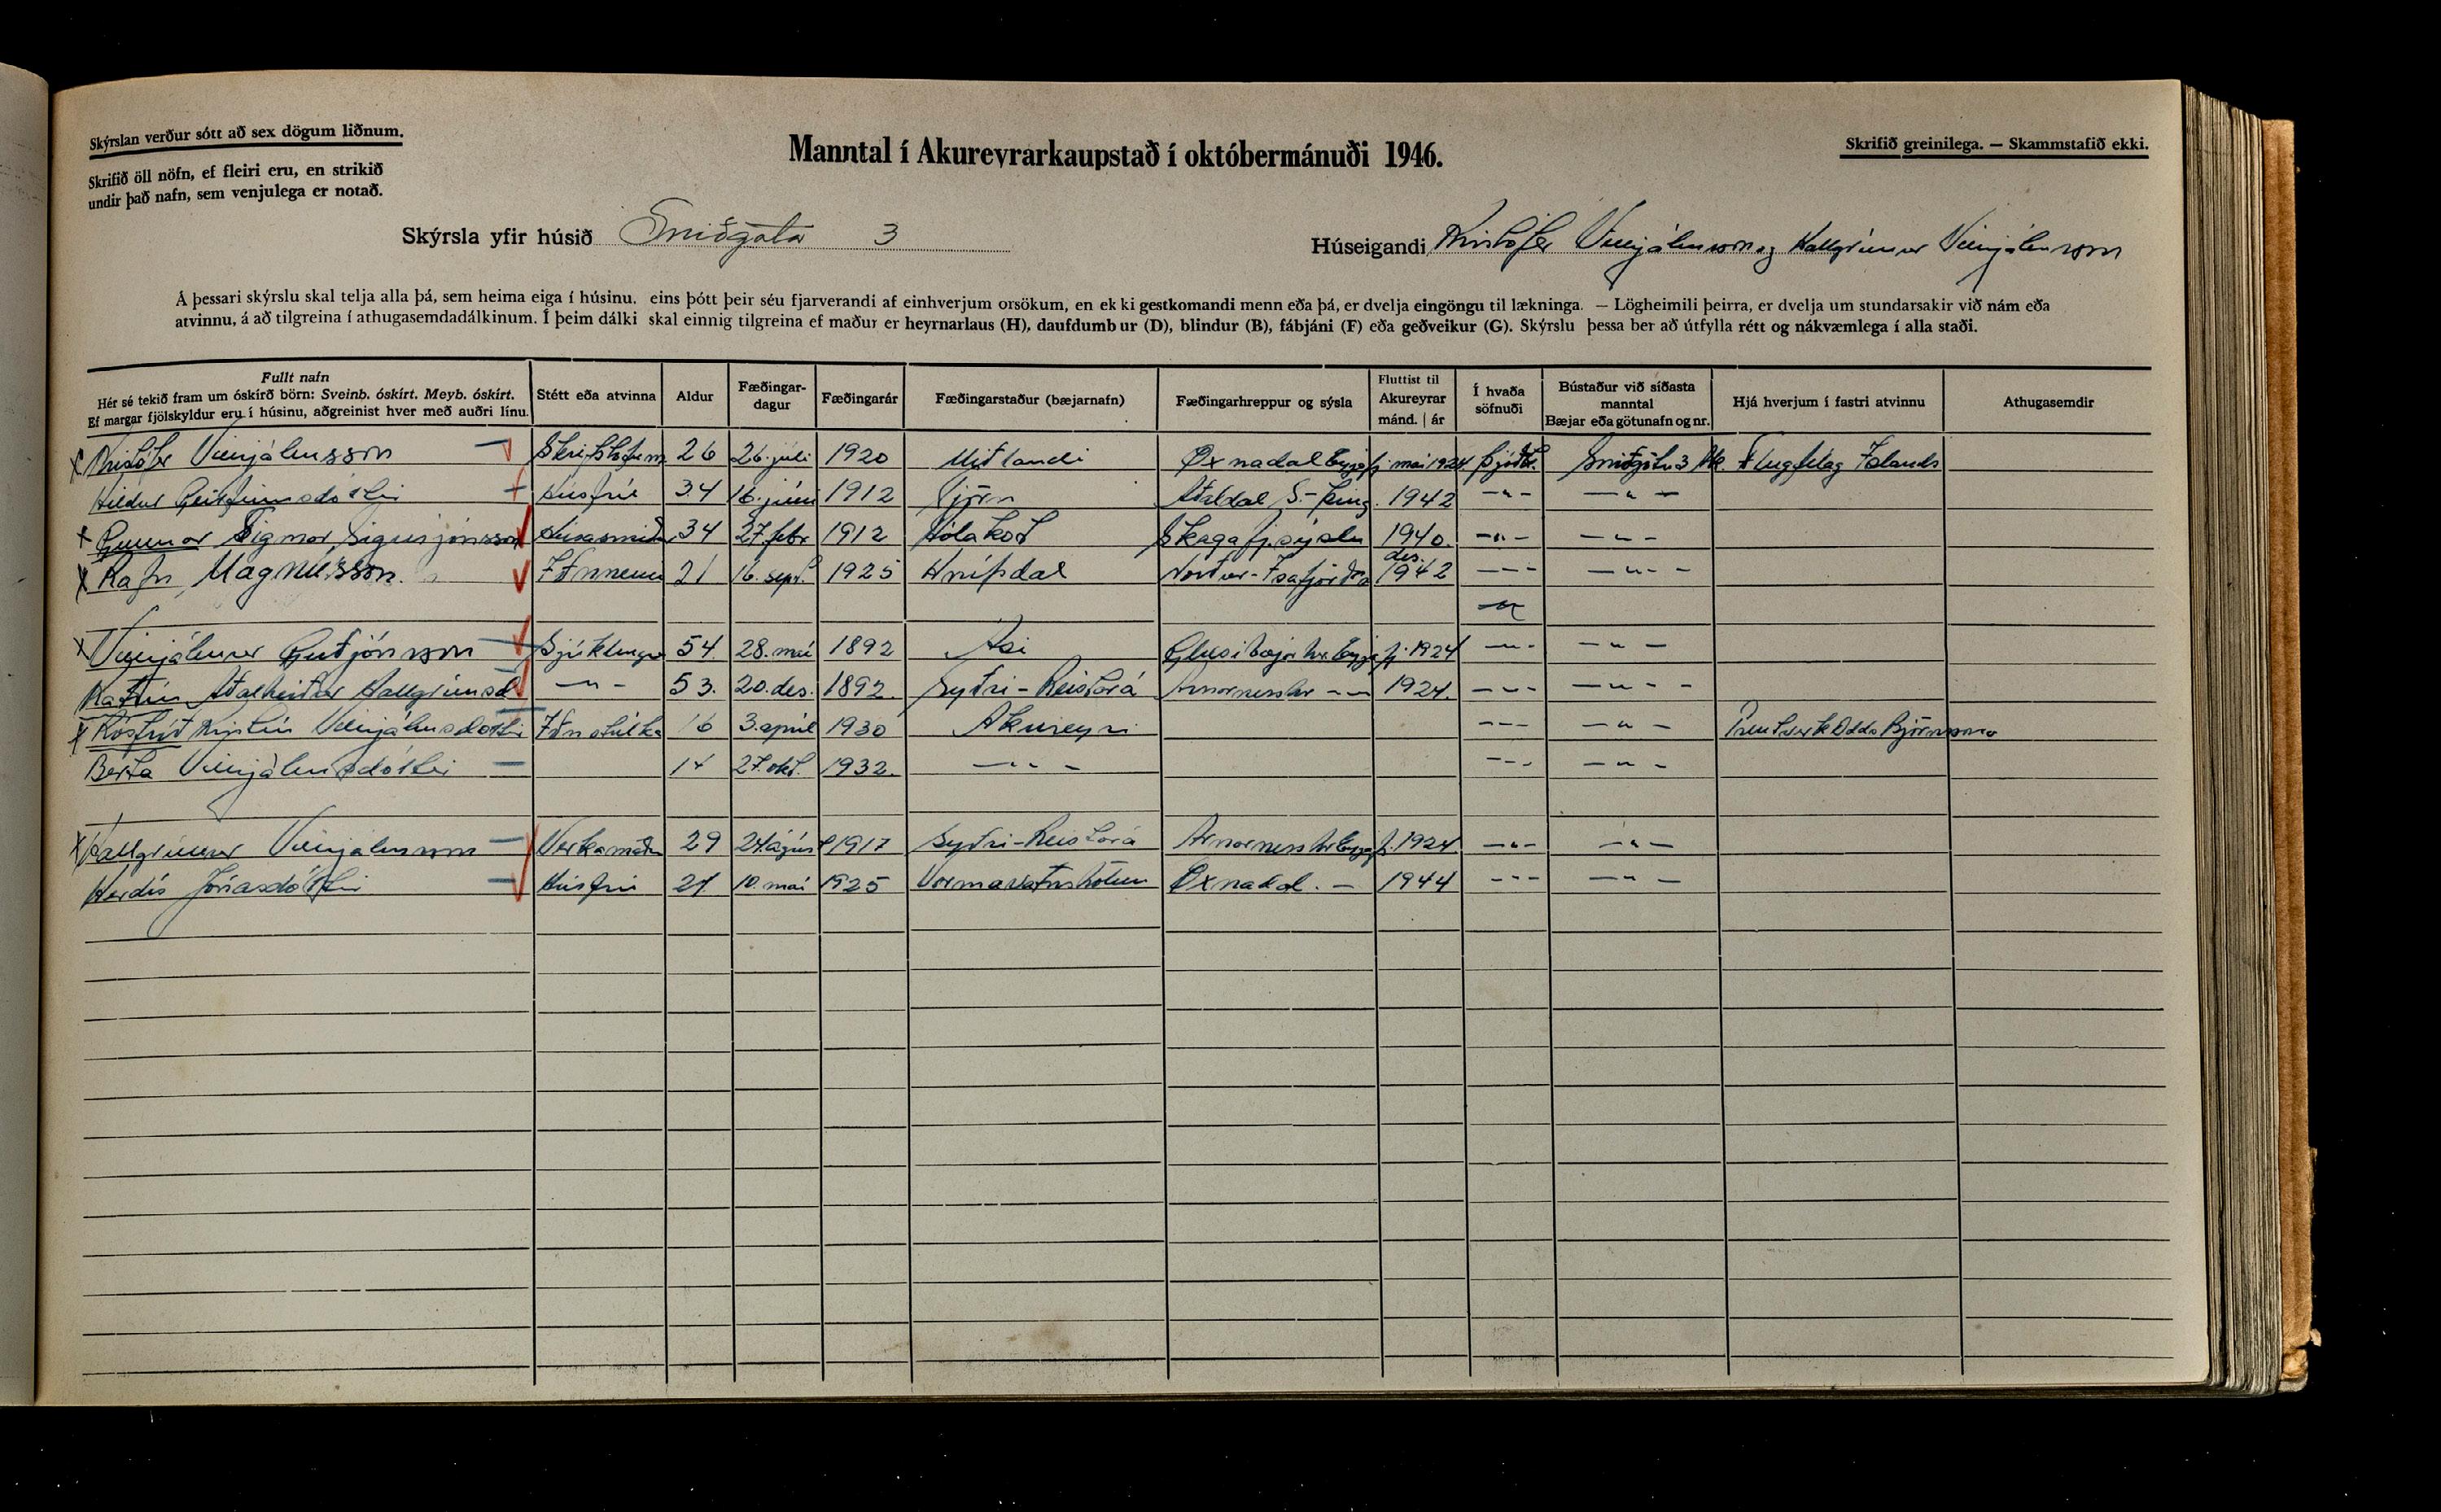 Skýrslan verður sótt að sex dögum liðnum.
Skrifið öll nöfn, ef fleiri eru, en strikið
undir það nafn, sem venjulega er notað.
Manntal í Akureyrarkaupstað í októbermánuði 1946.
Skrifið greinilega. — Skammstafið ekki.
Skýrsla yfir húsið Sniðgata 3
Húseigandi Kristófer Vilhjálmsson og Hallgrímur Vilhjálmsson
Á þessari skýrslu skal telja alla þá, sem heima eiga í húsinu, eins þótt þeir séu fjarverandi af einhverjum orsökum, en ekki gestkomandi menn eða þá, er dvelja eingöngu til lækninga. — Lögheimili þeirra, er dvelja um stundarsakir við nám eða
atvinnu, á að tilgreina í athugasemdadálkinum. Í þeim dálki skal einnig tilgreina ef maður er heyrnarlaus (H), daufdumbur (D), blindur (B), fábjáni (F) eða geðveikur (G). Skýrslu þessa ber að útfylla rétt og nákvæmlega í alla staði.
Fullt nafn
Hér sé tekið fram um óskírð börn: Sveinb. óskírt. Meyb. óskírt.
Ef margar fjölskyldur eru í húsinu, aðgreinist hver með auðri línu.
Stétt eða atvinna
Aldur
Fæðingar-
dagur
Fæðingarár
Fæðingarstaður (bæjarnafn)
Fæðingarhreppur og sýsla
Fluttist til
Akureyrar
mánd. | ár
Í hvaða
söfnuði
Bústaður við síðasta
manntal
Bæjar eða götunafn og nr.
Hjá hverjum í fastri atvinnu
Athugasemdir
x Kristófer Vilhjálmsson Skrifstofum 26 26. júlí 1920 Miðlandi Öxnadal Eyjafj. maí 1924 Þjóðk. Sniðgötu 3 Ak. Flugfélag Íslands
Hildur Húsfrú 34 16. júní 1912 Tjörn Aðaldal S.-Þing. 1942 -"- -"-
x Gunnar Sigmar Sigurjónsson Húsasmiður 34 27. febr 1912 Hólakot Skagafj.sýslu 1940 -"- -"-
x Rafn Magnússon Iðnnemi 21 16. sept. 1925 Hnífsdal Norður-Ísafjörður des. 1942 -"- -"-
-"-
x Vilhjálmur Guðjónsson Sjúklingur 54. 28. maí 1892 Ási Glæsibæjarhr. Eyjafj. 1924 -"- -"-
Katrín Aðalheiður Hallgrímsd -"- 53. 20. des. 1892. Syðri-Reistará Arnarneshr -"- 1924. -"- -"-
x Rósfríð Kristín Vilhjálmsdóttir Iðnstúlka 16 3. apríl 1930 Akureyri -"- -"- Prentverk Odds Björnssonar
Berta Vilhjálmsdóttir 14 27. okt. 1932. -"- -"- -"-
x Hallgrímur Vilhjálmsson Verkamaður 29 24. ágúst 1917 Syðri-Reistará Arnarneshr Eyjafj. 1924. -"- -"-
Herdís Jónasdóttir Húsfrú 21. 10. maí 1925 Öxnadal. - 1944 -"- -"-